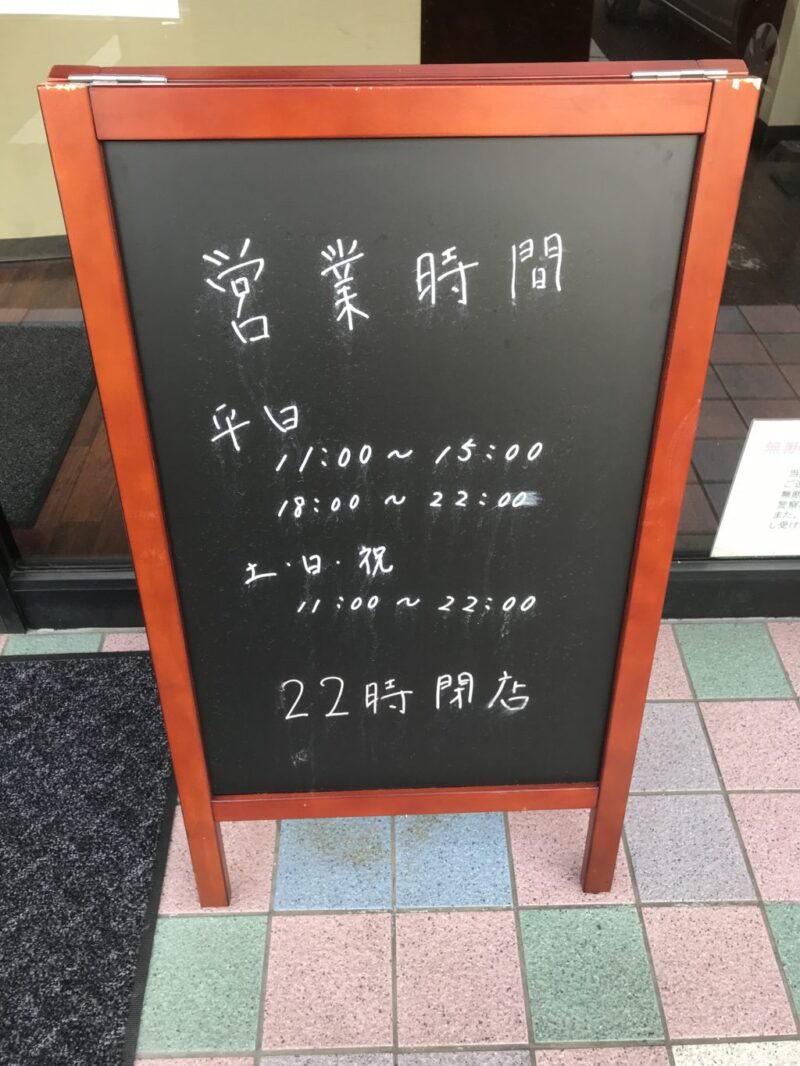 営業時間
平日
11:00～15:00
18:00～22:00
土・日・祝
11:00～22:00
22時閉店
無断
当
ご遠
無断
警察
また、
し受け